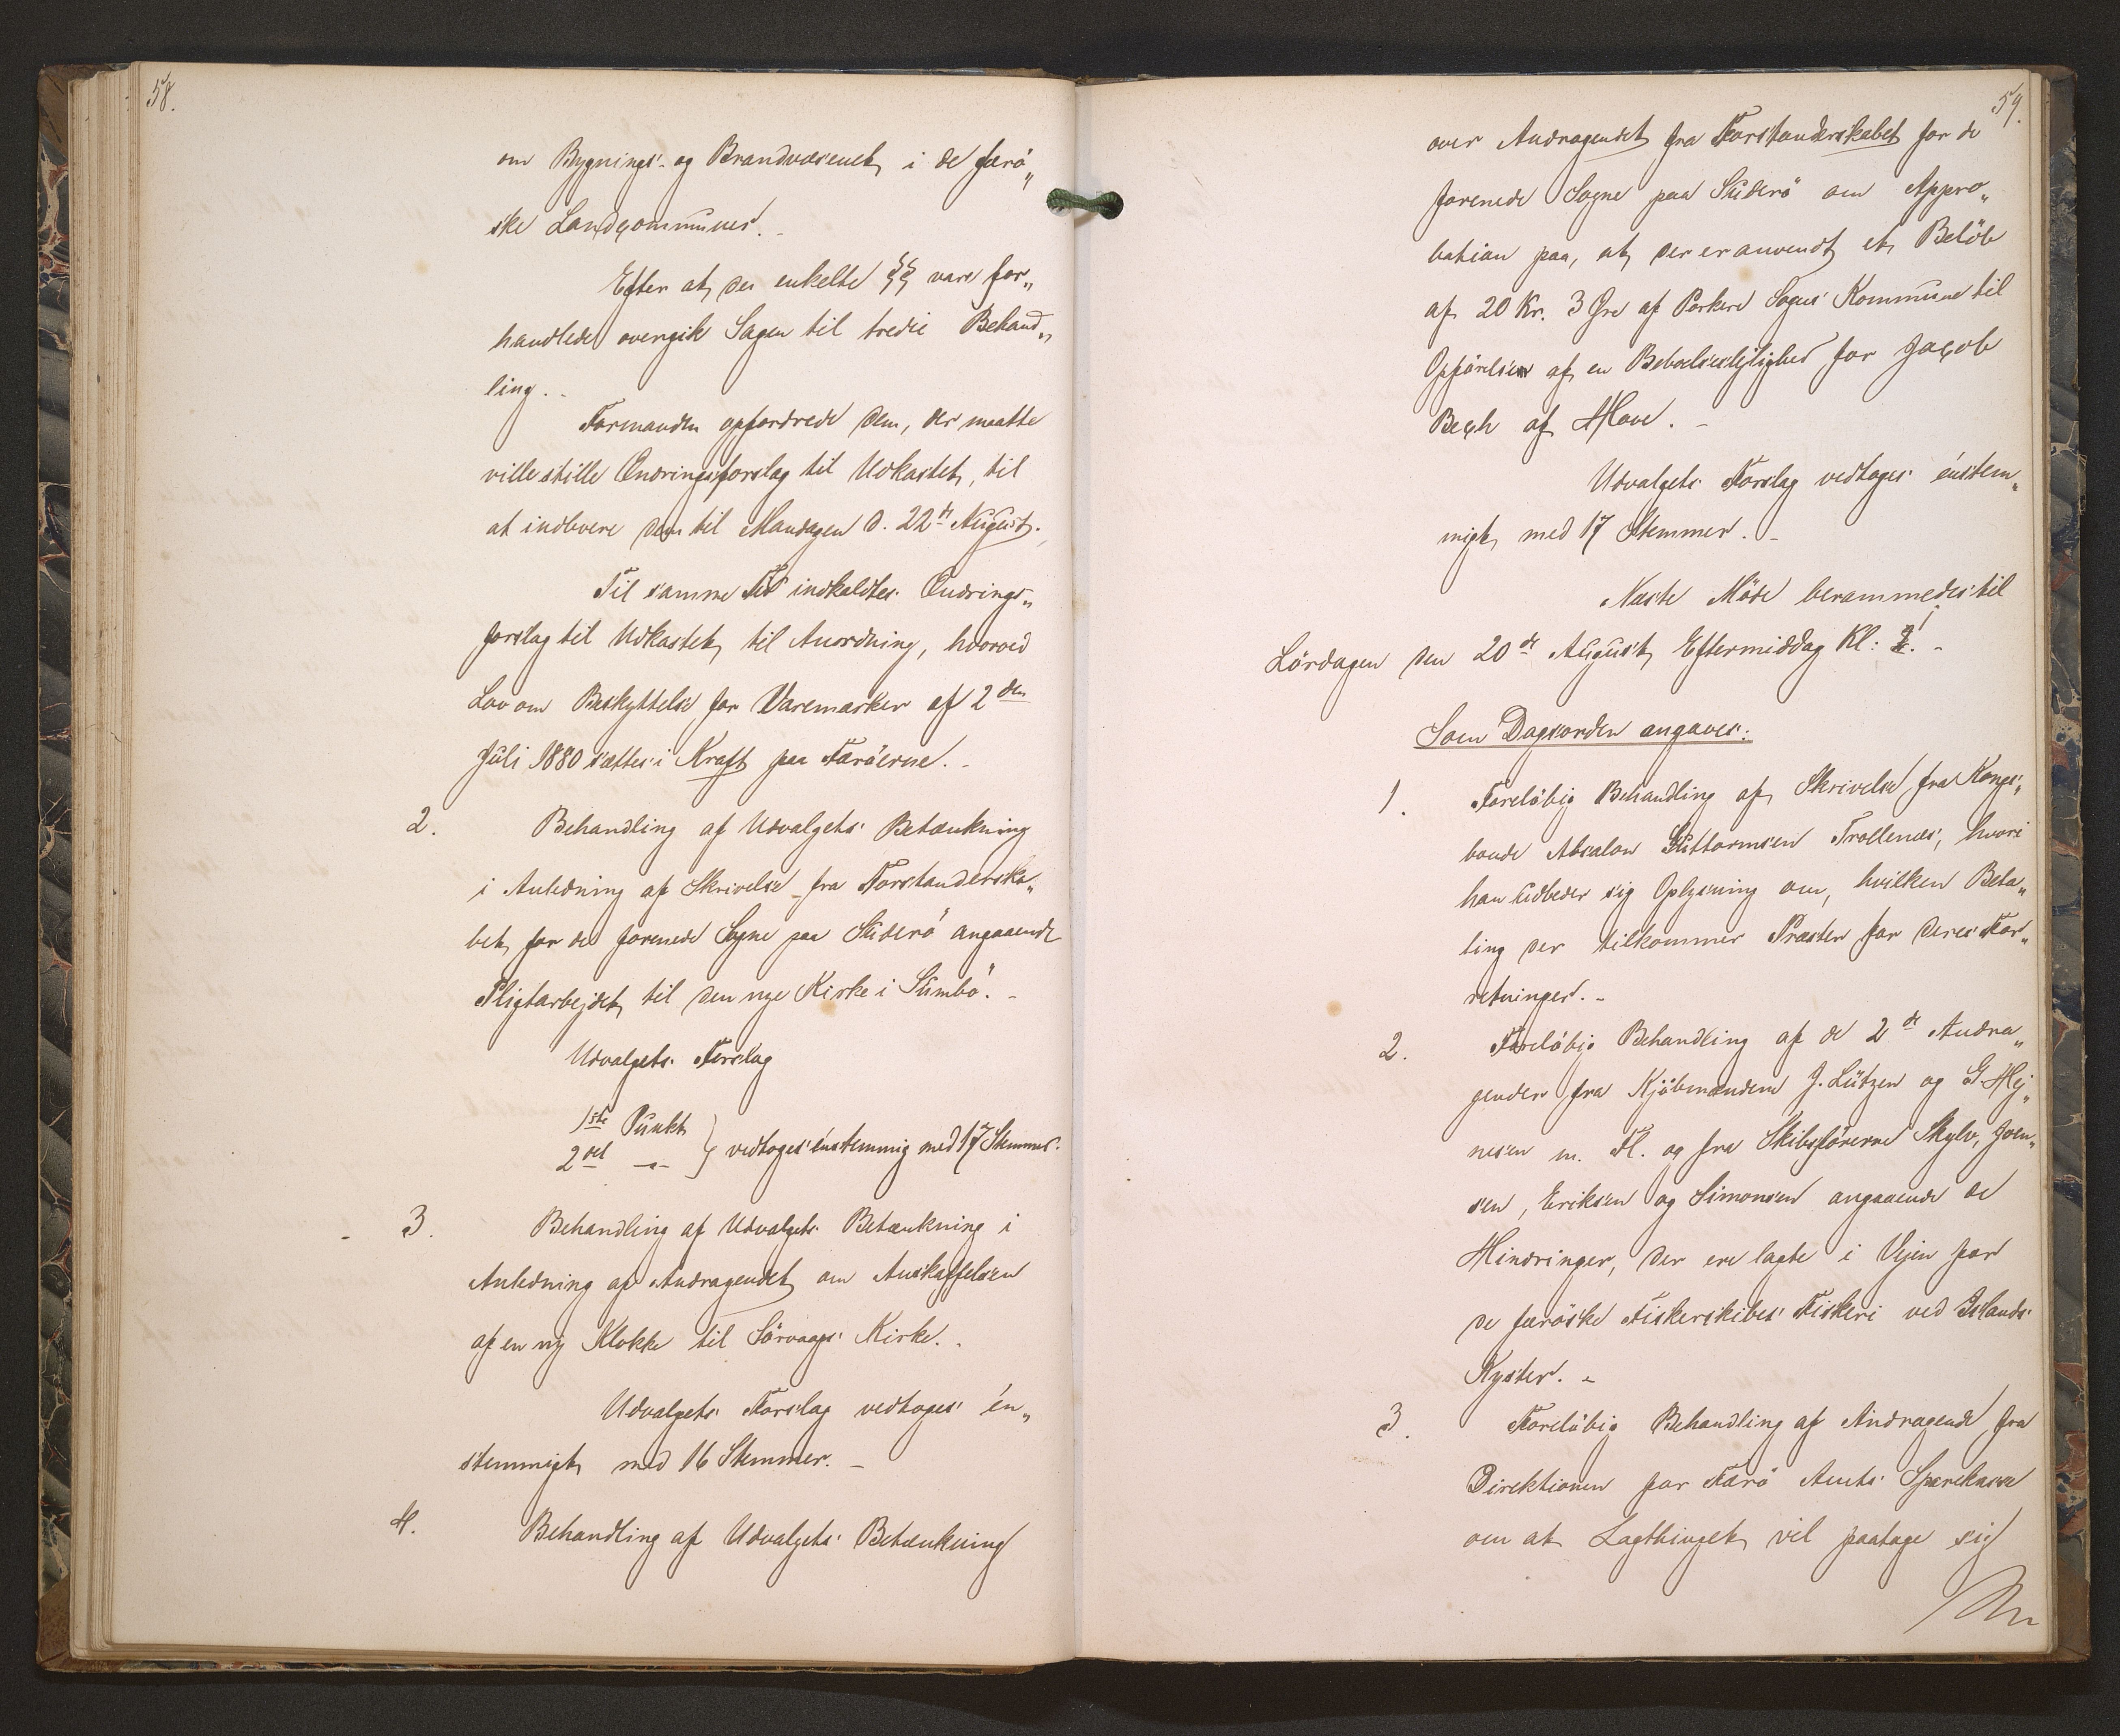 58.
om Bygnings- og Brandvæsenet i de færö„
ske Landcommuner. -
Efter at de enkelte §§ vare for„
handlede overgik Sagen til tredie Behand„
ling. -
Formanden opfordrede dem, der maatte
ville stille Ændringsforslag til Udkastet, til
at indlevere dem til Mandagen d. 22de August.
Til samme Tid indkaldtes Ændrings„
forslag til Udkastet til Anordning, hvorved
Lov om Beskyttelse for Varemærker af 2den
Juli 1880 sættes i Kraft paa Færöerne. -
2. Behandling af Udvalgets Betænkning
i Anledning af Skrivelse fra Forstanderska„
bet for de forenede Sogne paa Suderö angaaende
Pligtarbejdet til den nye Kirke i Sumbö. -
Udvalgets Forslag
1ste Punkt
2det -"- } vedtoges énstemmig med 17 Stemmer.
3. Behandling af Udvalgets Betænkning i
Anledning af Andragendet om Anskaffelsen
af en ny Klokke til Sörvaags Kirke. -
Udvalgets Forslag vedtoges én„
stemmigt med 16 Stemmer. -
4. Behandling af Udvalgets Betænkning
59.
over Andragendet fra Forstanderskabet for de
forenede Sogne paa Suderö om Appro„
bation paa, at der er anvendt et Belöb
af 20 Kr. 3 Øre af Porkere Sogns Kommune til
Opförelsen af en Beboelseslejlighed for Jacob
Bech af Hove. -
Udvalgets Forslag vedtoges énstem„
migt med 17 Stemmer. -
Næste Möde berammedes til
Lördagen den 20de August Eftermiddag Kl: 1. -
Som Dagsorden angaves:
1. Foreløbig Behandling af Skrivelse fra Kongs„
bonde Absalon Guttormsen Trollenæs, hvori
han udbeder sig Oplysning om, hvilken Beta„
ling der tilkommer Præster for deres For„
retninger. -
2. Forelöbig Behandling af de 2de Andra„
gender fra Kjöbmændene J. Lützen og G. Hej„
nesen m. Fl. og fra Skibsförerne Skylv, Joen„
sen, Eriksen og Simonsen angaaende de
Hindringer, der ere lagte i Vejen for
de færöske Fiskerskibes Fiskeri ved Islands
Kyster. -
3. Forelöbig Behandling af Andragende fra
Direktionen for Færö Amts Sparekasse
om at Lagthinget vil paatage sig